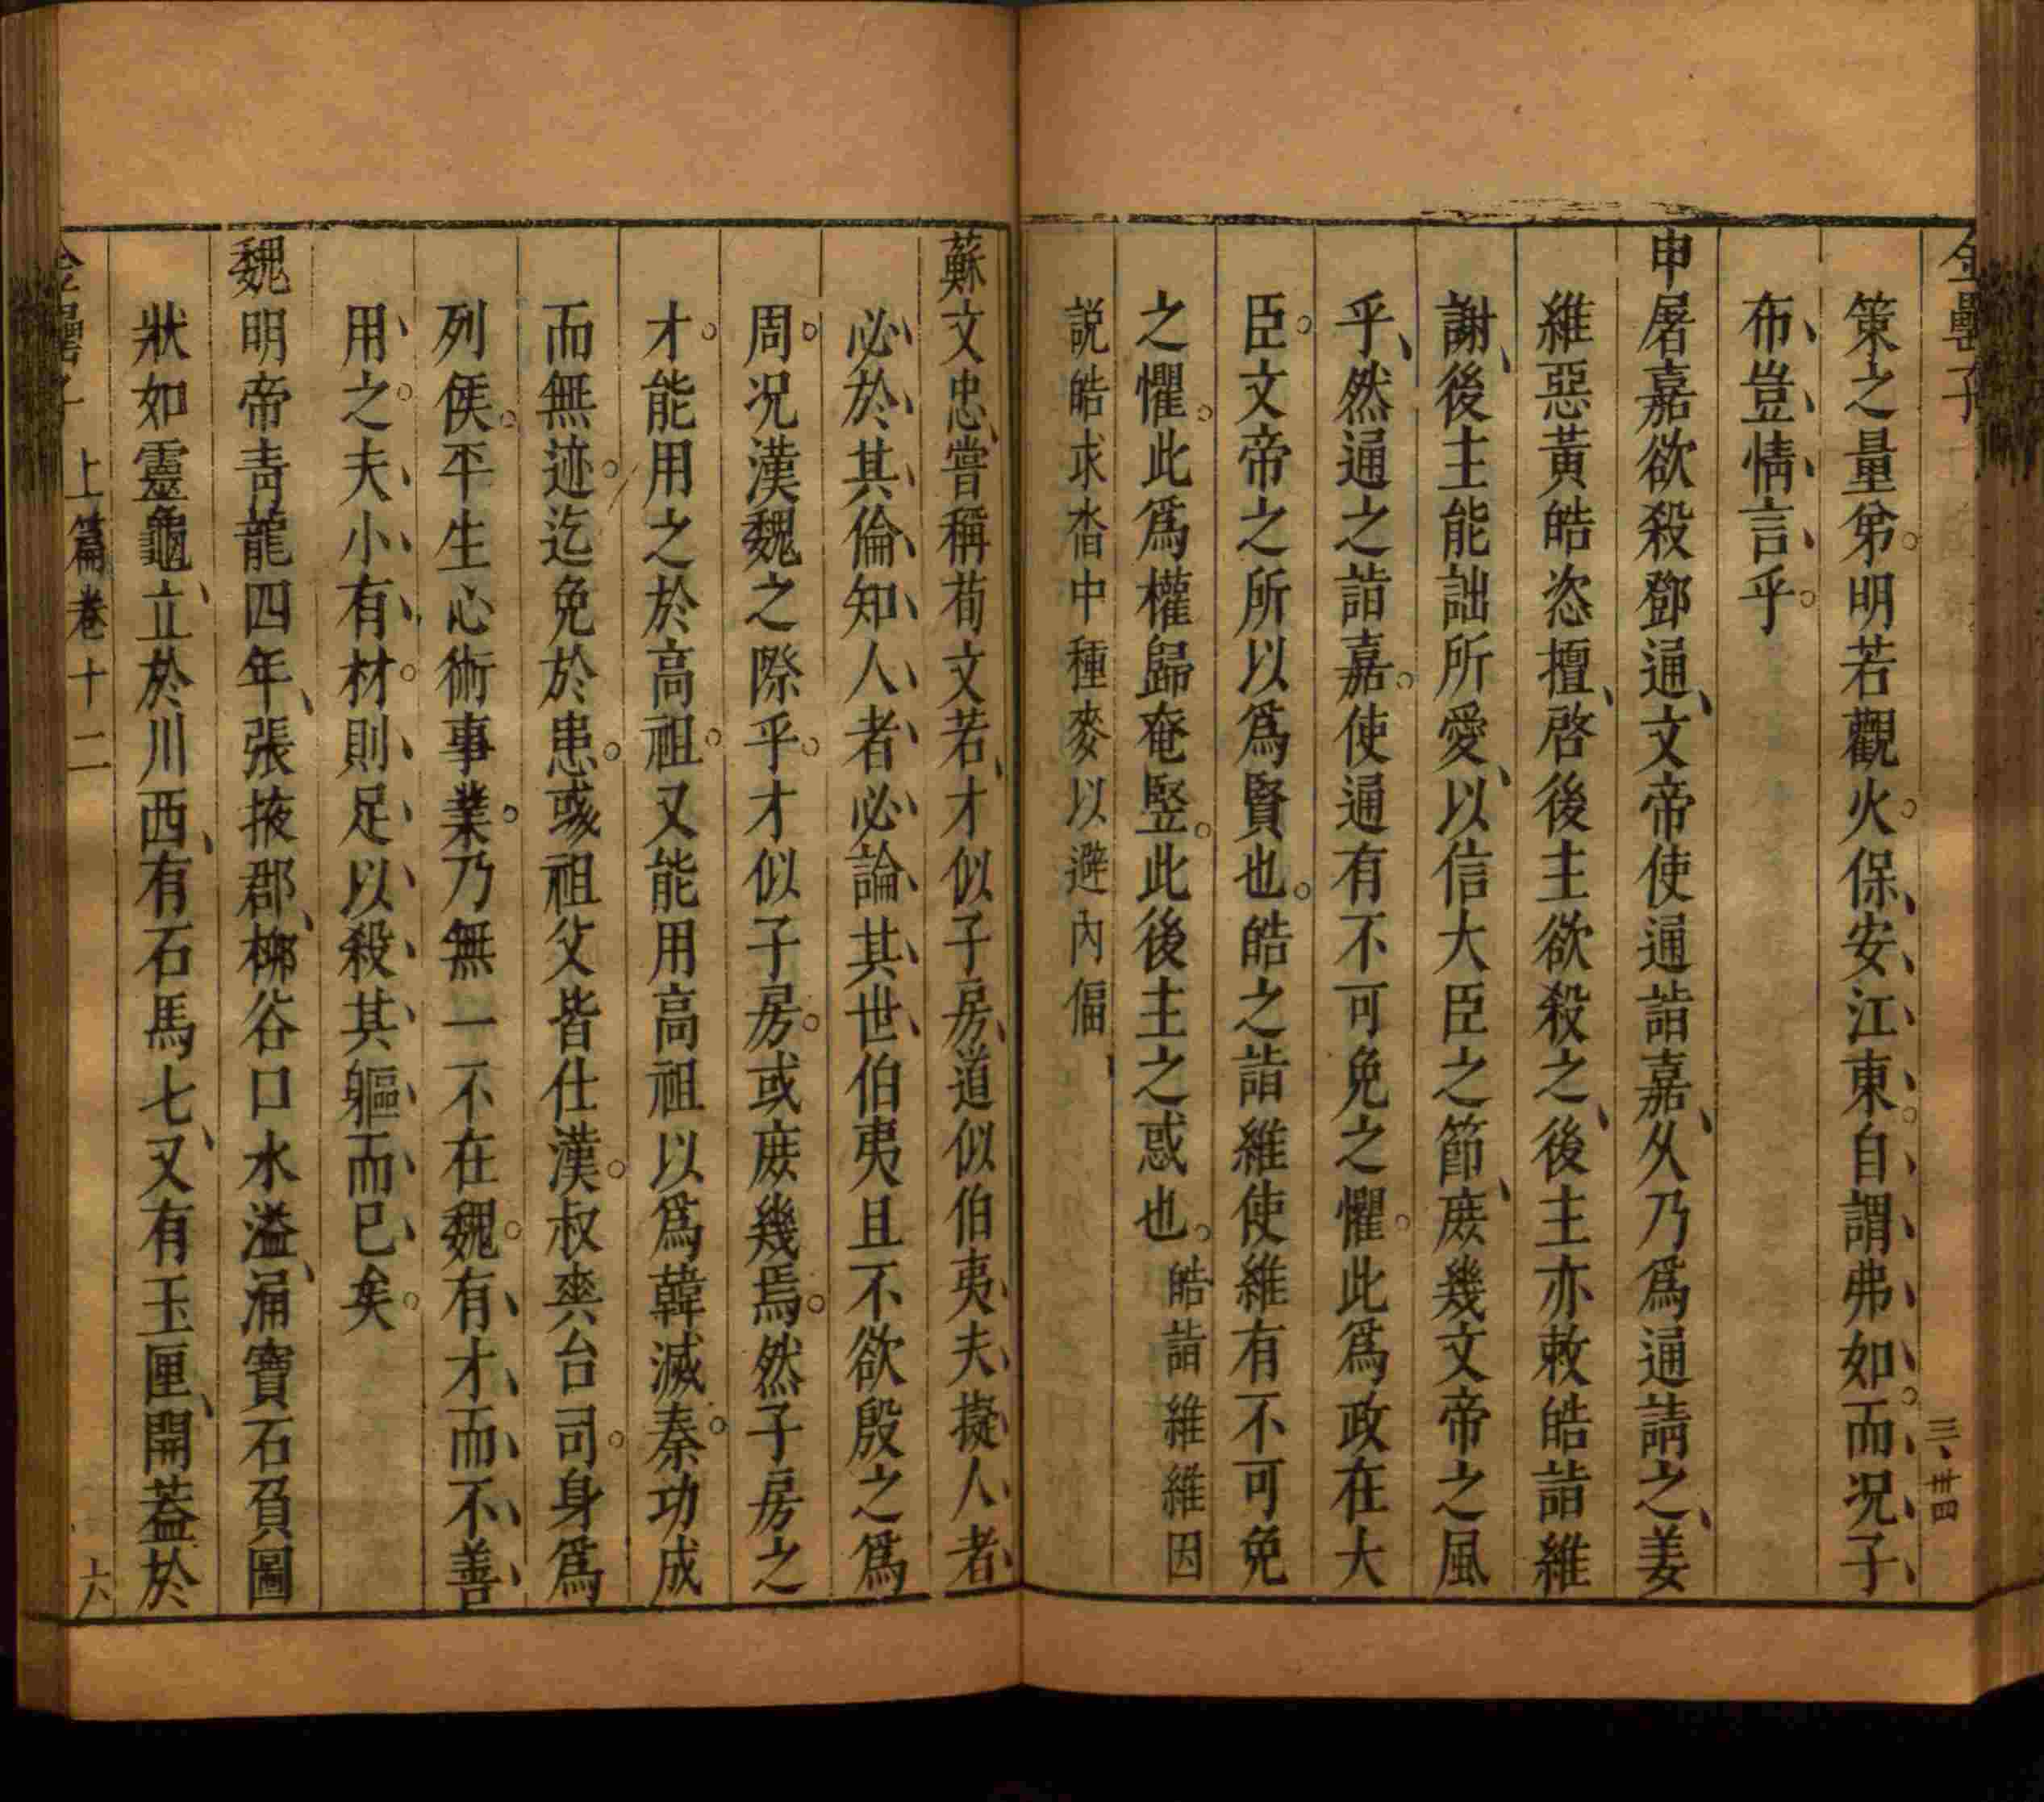 金罍子
三、卅四
策之量弟。明若觀火。保安江東。自謂弗如。而况子
布豈情言乎。
申屠嘉欲殺鄧通、文帝使通詣嘉、久乃爲通請之、姜
維惡黃皓恣擅、啓後主欲殺之、後主亦敕皓詣維
謝、後主能詘所愛、以信大臣之節、庶幾文帝之風
乎、然通之詣嘉。使通有不可免之懼。此爲政在大
臣。文帝之所以爲賢也。皓之詣維使維有不可免
之懼。此爲權歸奄豎。此後主之惑也。皓詣維維因
説皓求沓中種麥以避內偪、
蘇文忠嘗稱荀文若、才似子房、道似伯夷、夫擬人者、
必於其倫、知人者、必論其世、伯夷且不欲殷之爲
周。况漢魏之際乎。才似子房。或庶幾焉。然子房之
才。能用之於高祖。又能用高祖以爲韓滅秦。功成
而無迹。迄免於患。彧祖父皆仕漢。叔爽台司。身爲
列侯。平生心術事業。乃無一不在魏。有才而不善
用之。夫小有材。則足以殺其軀而已矣。
魏明帝青龍四年、張掖郡、柳谷口水溢、涌寶石負圖
狀如靈龜、立於川西、有石馬七、又有玉匣、開蓋於
上篇卷十二
六